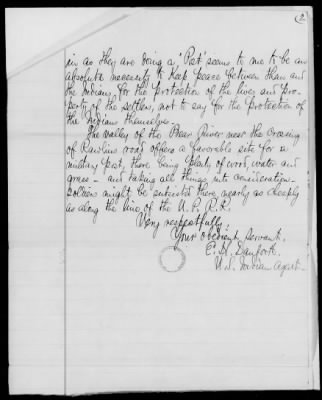 2
in as they are being a "Post" seems to me to be an
absolute necessity to keep peace between them and
the Indians for the protection of the lives and pro-
perty of the settlers, not to say for the protection of
the Indians themselves.
The valley of the Bear River near the Crossing
of Rawlins road offers a favorable site for a
military post, there being plenty of wood, water and
grass – and taking all things into consideration
soldiers might be subsisted there nearly as cheaply
as along the line of the U. P. R.R.
Very respectfully,
Your obedient servant,
E. H. Danforth
U.S. Indian Agent